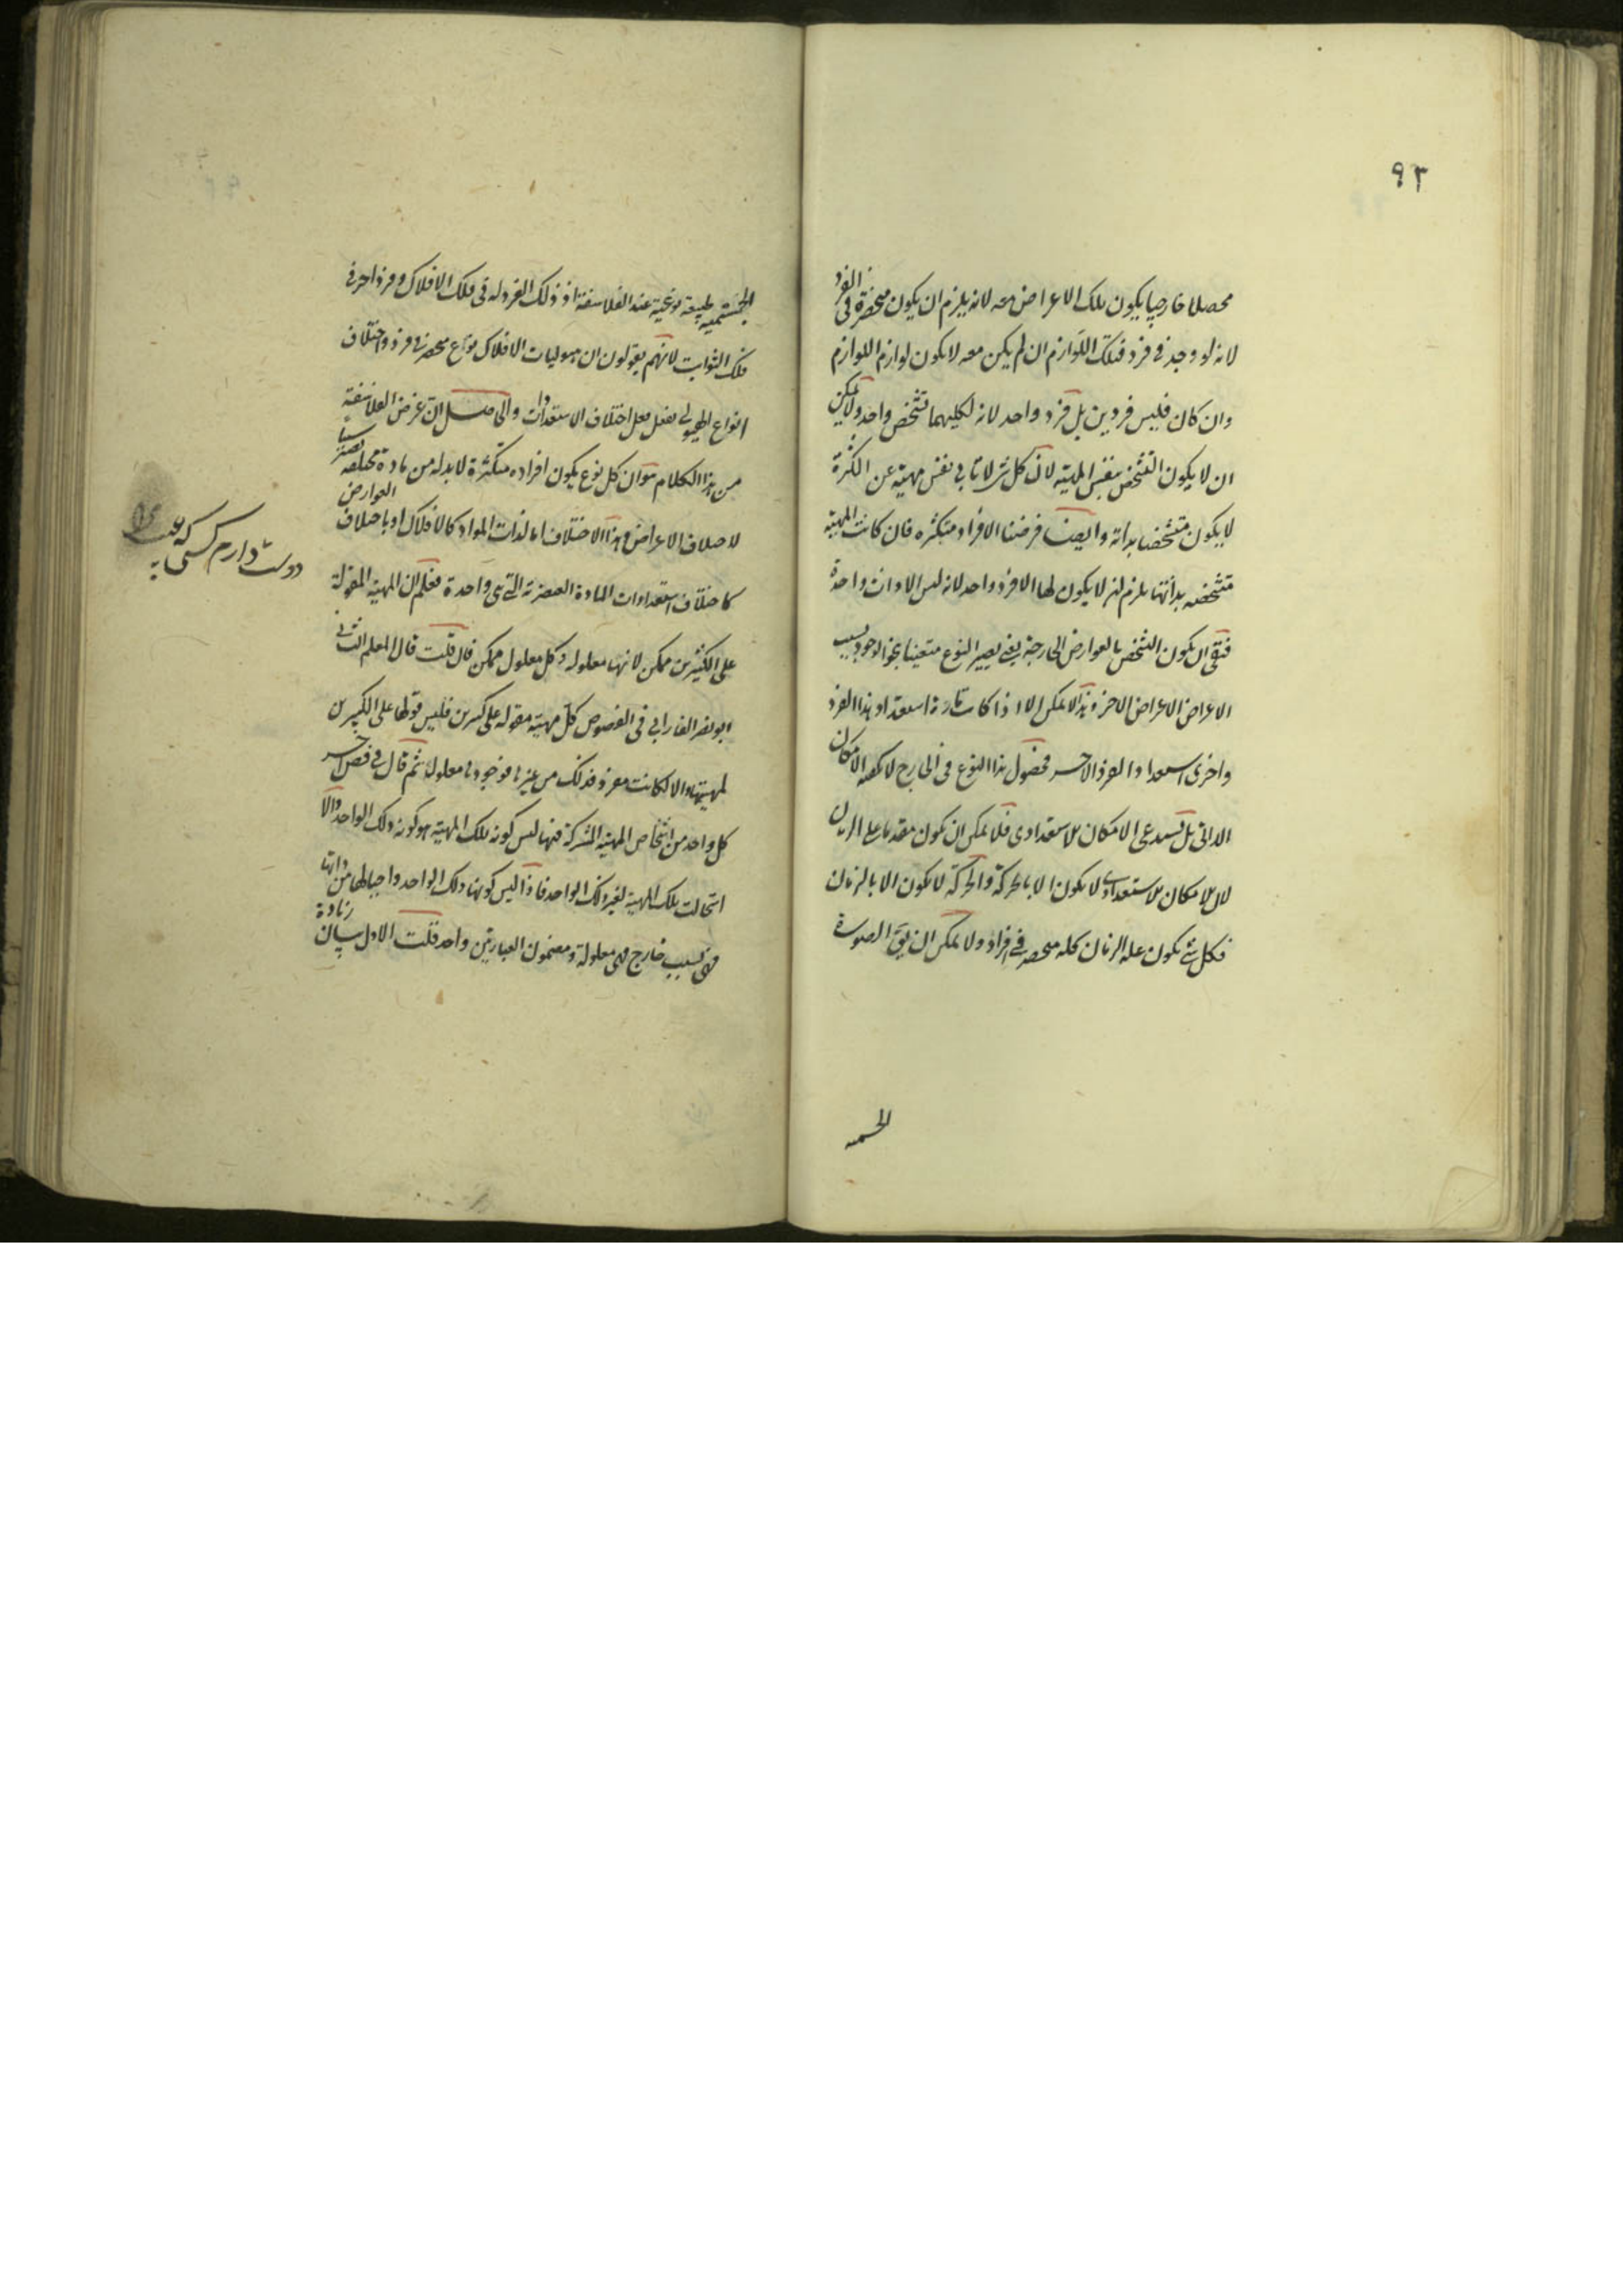 ٩٢
محصلا خارجيا يكون تلك الاعراض معه لانه يلزم ان يكون منحصرة فى الفرد
لانه لو وجد فى فرد فتلك اللوازم ان لم يكن معه لا يكون لوازم اللوازم
وان كان فليس فردين بل فرد واحد لانه لكليهما تشخص واحد ولا يمكن
ان لا يكون التشخص بنفس المهية لان كل شى لا تابى نفس مهيته عن الكثرة
لا يكون متشخصا بذاته وايضا فرضنا الافراد متكثره فان كانت المهية
متشخصه بذاتها يلزم ان لا يكون لها الا فرد واحد لانه ليس الا ذات واحدة
فبقى ان يكون التشخص بالعوارض الخارجة يعنى يصير النوع متعينا بنحو الوجود بسبب
الاعراض الاعراض الاخر وهذا لا يمكن الا اذا كانت تارة استعداد هذا الفرد
واخرى استعداد الفرد الاخر فحصول هذا النوع فى الخارج لا يكفيه الامكان
الذاتى بل يستدعى الامكان الاستعدادى فلا يمكن ان يكون مقدما على الزمان
لان الامكان الاستعدادى لا يكون الا بالحركة والحركة لا يكون الا بالزمان
فكل شئ يكون علة الزمان كله منحصر فى افراد ولا يمكن ان يق الصورة
الجسمية
الجسمية طبيعة نوعية عند الفلاسفة اذ ذلك الفرد له فى فلك الافلاك وفرد اخر فى
فلك الثوابت لانهم يقولون ان هيوليات الافلاك نوع منحصر فى فرد واختلاف
انواع الهيولى يفعل فعل اختلاف الاستعدادات والحاصل ان غرض الفلاسفة
من هذا الكلام هو ان كل نوع يكون افراده متكثرة لا بد له من مادة مختلفه تصير سببا
لاختلاف الاعراض وهذا الاختلاف اما لذات المواد كالافلاك او باختلاف العوارض
كاختلاف استعدادات المادة العنصرية التى هى واحدة فعلم ان المهية المقولة
على الكثيرين ممكن لانها معلوله وكل معلول ممكن فان قلت قال المعلم الثانى
ابو نصر الفارابى فى الفصوص كل مهية مقوله على كثيرين فليس قولها على الكثيرين
لمهيتها والا لما كانت مفرد فذلك من غيرها فوجودها معلول ثم قال فى فص اخر
كل واحد من اشخاص المهية المشتركة فيها ليس كونه تلك المهية هو كونه ذلك الواحد والا
استحالت تلك المهية لغير ذلك الواحد فاذا ليس كونها ذلك الواحد واجبا لها من ذاتها
فهى بسبب خارج فهى معلولة ومضمون العبارتين واحد قلت الاول بيان زيادة
دوست دارم كسى كه